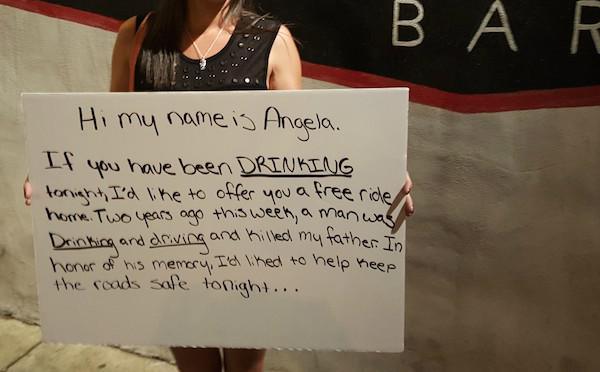 BAR
Hi my name is Angela.
If you have been DRINKING
tonight, I'd like to offer you a free ride
home. Two years ago this week, a man was
Drinking and driving and killed my father. In
honor of his memory, I'd liked to help keep
the roads safe tonight...